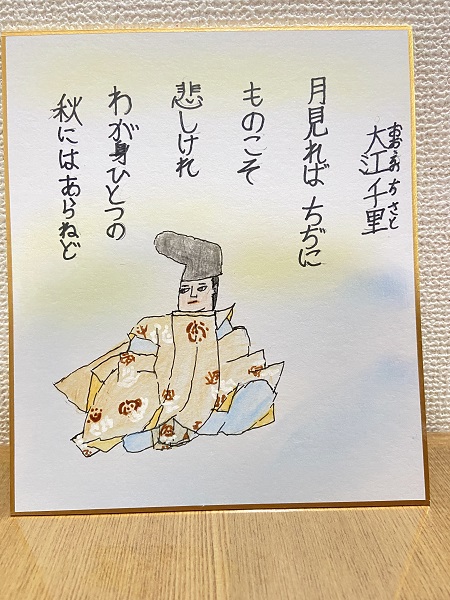 大江千里
おおえのちさと
月見ればちぢに
ものこそ
悲しけれ
わが身ひとつの
秋にはあらねど